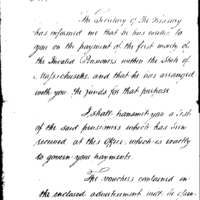 The Secretary of the Treasury
has informed me that he has written to
you on the payment of the first moiety of
the Invalid Pensioners within the State of
Massachusetts, and that he has arranged
with you the funds for that purpose
I shall transmit you a List
of the said pensioners which has been
received at this Office, which is exactly
to govern your payments.
The vouchers contained in
the enclosed advertisement must be